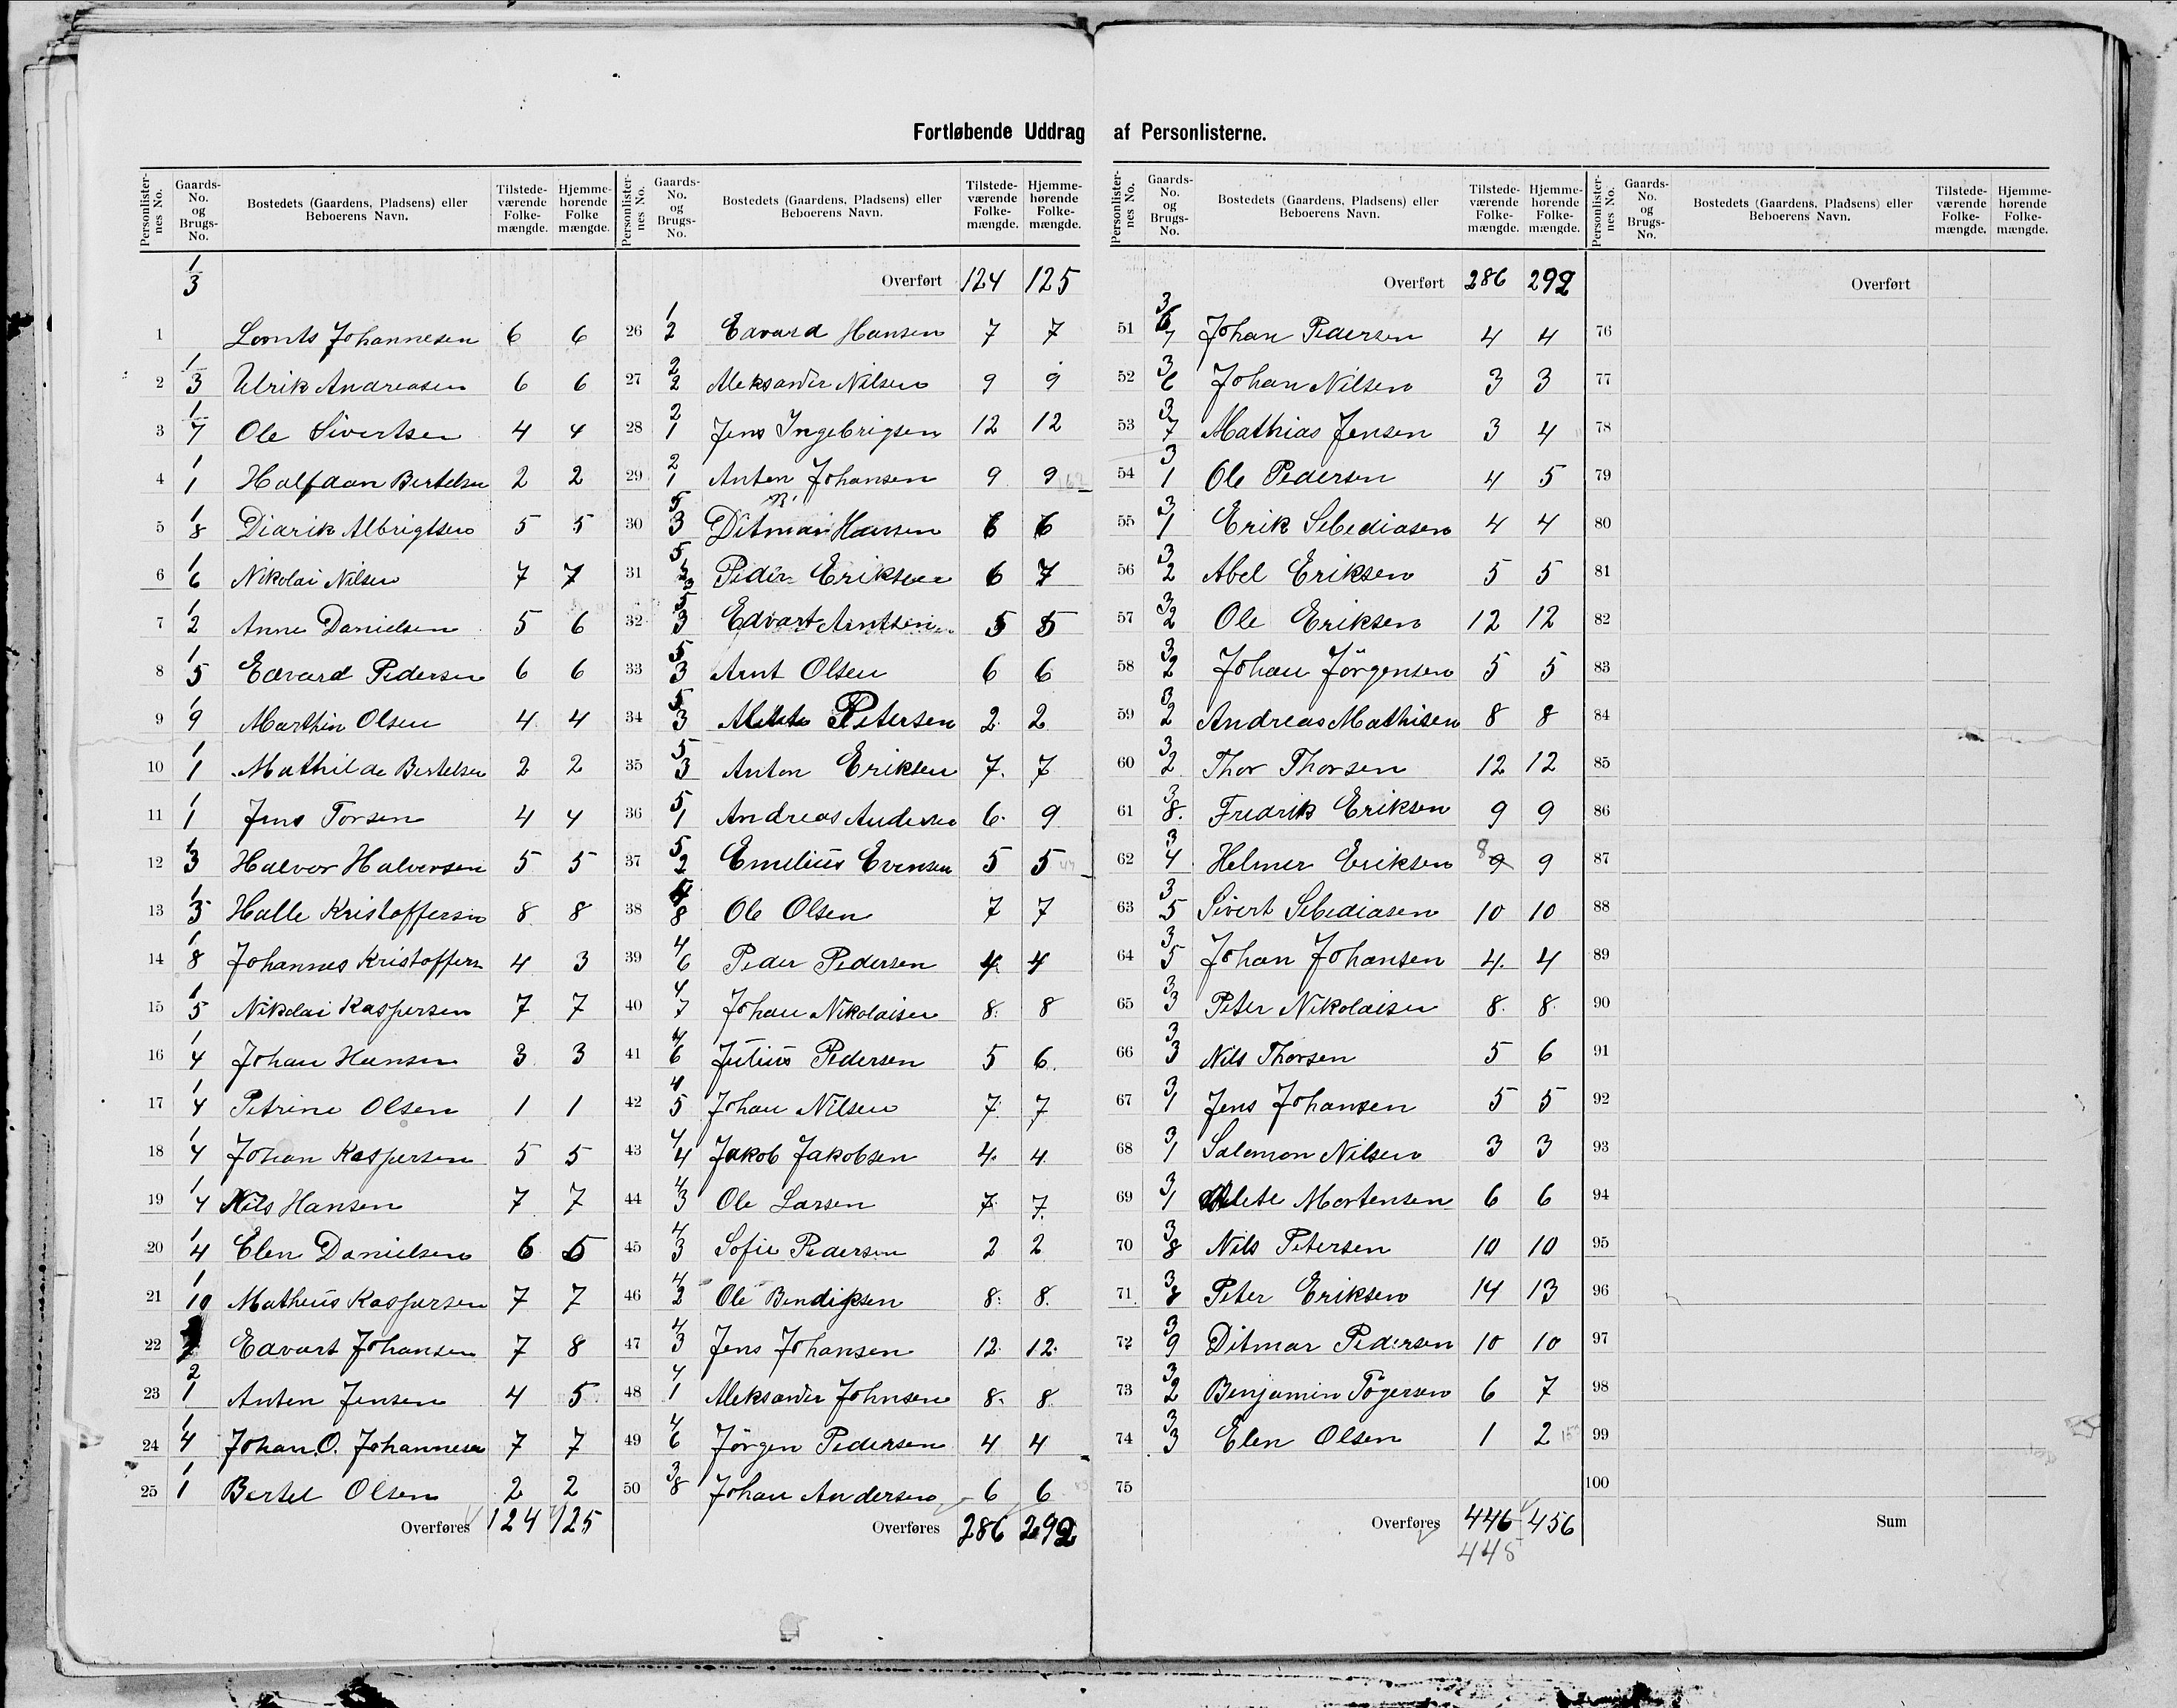 Fortløbende Uddrag af Personlisterne.
Personlister-nes No. Gaards-No. og Brugs-No. Bostedets (Gaardens, Pladsens) eller Beboerens Navn. Tilstede-værende Folke-mængde. Hjemme-hørende Folke mængde.
1/3
1 Johannesen 6 6
2 1/3 Ulrik Andreasen 6 6
3 1/7 Ole Sivertsen 4 4
4 1/1 Halfdan Bertelsen 2 2
5 1/8 Didrik Albrigtsen 5 5
6 1/6 Nikolai Nilsen 7 7
7 1/2 Anne Danielsen 5 6
8 1/5 Edvard Pedersen 6 6
9 1/9 Marthin Olsen 4 4
10 1/1 Mathilde Bertelsen 2 2
11 1/1 Jens Torsen 4 4
12 1/3 Halvor Halvorsen 5 5
13 1/3 Halle Kristoffersen 8 8
14 1/8 Johannes Kristoffers 4 3
15 1/5 Nikolai Kaspersen 7 7
16 1/4 Johan Hansen 3 3
17 1/4 Petrine Olsen 1 1
18 1/4 Johan Kaspersen 5 5
19 1/4 Nils Hansen 7 7
20 1/4 Elen Danielsen 6 5
21 1/10 Matheus Kaspersen 7 7
22 Edvart Johansen 7 8
23 2/1 Anton Jensen 4 5
24 1/4 Johan O. Johannesen 7 7
25 1/1 Bertel Olsen 2 2
Overføres 124 125
Personlister-nes No. Gaards-No. og Brugs-No. Bostedets (Gaardens, Pladsens) eller Beboerens Navn. Tilstede-værende Folke-mængde. Hjemme-hørende Folke-mængde.
Overført 124 125
26 1/2 Edvard Hansen 7 7
27 2/2 Aleksander Nilsen 9 9
28 2/1 Jens Ingebrigsen 12 12
29 2/1 Anton Johansen 9 9
30 5/3 Ditmar Hansen 6 6
31 5/3 Peder Eriksen 6 7
32 5/3 Edvart Arntsen 5 5
33 5/3 Arnt Olsen 6 6
34 5/3 Petersen 2 2
35 5/3 Anton Eriksen 7 7
36 5/1 Andreas Andersen 6 9
37 5/2 Emelius Evensen 5 5
38 4/8 Ole Olsen 7 7
39 4/6 Peder Pedersen 4 4
40 4/7 Johan Nikolaisen 8 8
41 4/6 Julius Pedersen 5 6
42 4/5 Johan Nilsen 7 7
43 4/4 Jakob Jakobsen 4 4
44 4/3 Ole Larsen 7 7
45 4/3 Sofie Pedersen 2 2
46 4/2 Ole Bendiksen 8 8
47 4/3 Jens Johansen 12 12
48 4/1 Aleksander Johnsen 8 8
49 4/6 Jörgen Pedersen 4 4
50 3/8 Johan Andersen 6 6
Overføres 286 292
Personlister-nes No. Gaards-No. og Brugs-No. Bostedets (Gaardens, Pladsens) eller Beboerens Navn. Tilstede-værende Folke-mængde. Hjemme-hørende Folke-mængde.
Overført 286 292
51 Johan Pedersen 4 4
52 3/6 Johan Nilsen 3 3
53 3/7 Mathias Jensen 3 4
54 3/1 Ole Pedersen 4 5
55 3/1 Erik Sebediasen 4 4
56 3/2 Abel Eriksen 5 5
57 3/2 Ole Eriksen 12 12
58 3/2 Johan Jörgensen 5 5
59 3/2 Andreas Mathisen 8 8
60 3/2 Thor Thorsen 12 12
61 3/8 Fredrik Eriksen 9 9
62 3/4 Helmer Eriksen 8 9 9
63 3/5 Sivert Sebediasen 10 10
64 3/5 Johan Johansen 4 4
65 3/3 Peter Nikolaisen 8 8
66 3/3 Nils Thorsen 5 6
67 3/1 Jens Johansen 5 5
68 3/1 Salomon Nilsen 3 3
69 3/1 Mortensen 6 6
70 3/8 Nils Petersen 10 10
71 3/8 Peter Eriksen 14 13
72 3/9 Ditmar Pedersen 10 10
73 3/2 Benjamin Tögersen 6 7
74 3/3 Elen Olsen 1 2
75
Overføres 446 456
445
Personlister-nes No. Gaards-No. og Brugs-No. Bostedets (Gaardens, Pladsens) eller Beboerens Navn. Tilstede-værende Folke-mængde. Hjemme-hørende Folke-mængde.
Overført
76
77
78
79
80
81
82
83
84
85
86
87
88
89
90
91
92
93
94
95
96
97
98
99
100
Sum